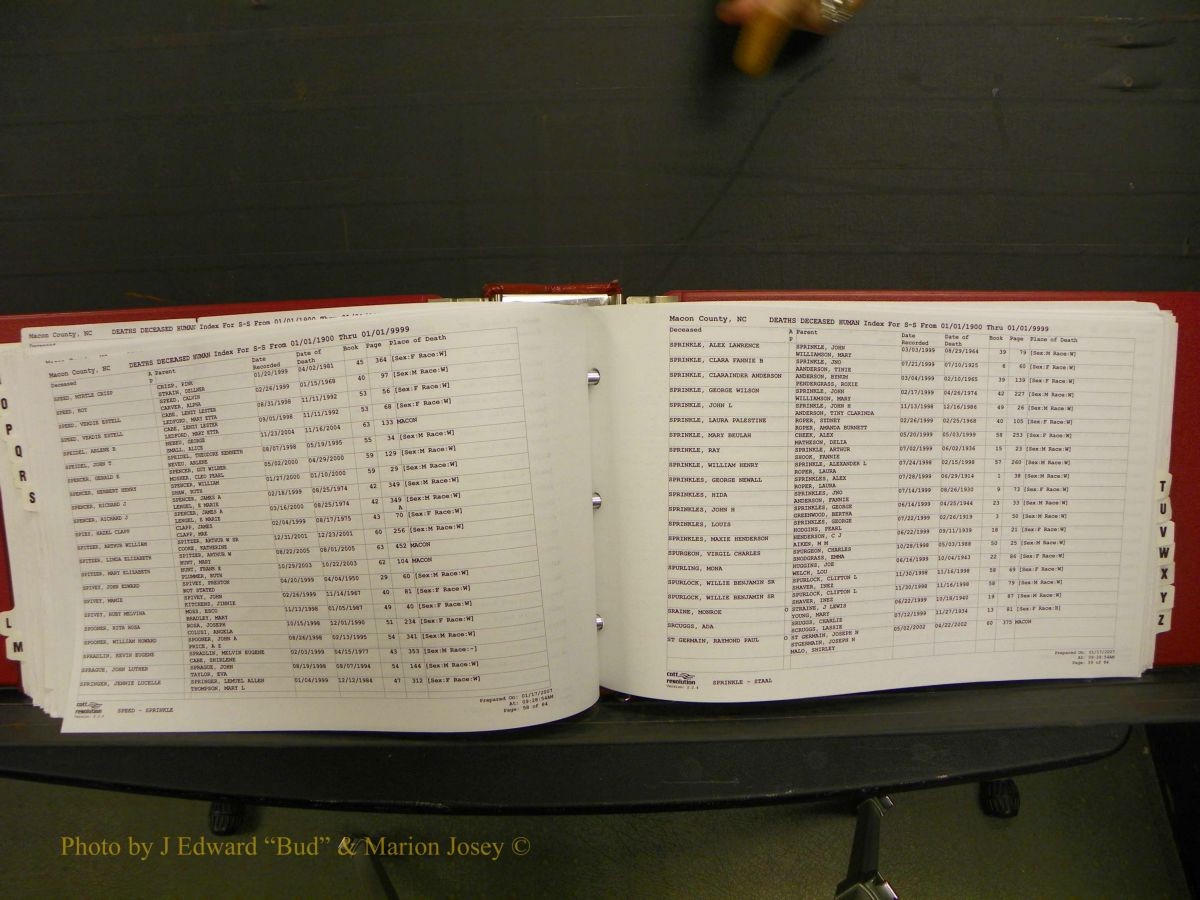 O
P
Q
R
S
L
M
Macon County, NC DEATHS DECEASED HUMAN Index For S-S From 01/01/1900 Thru 01/01/9999
Macon County, NC DEATHS DECEASED HUMAN Index For S-S From 01/01/1900 Thru 01/01/9999
Deceased A Parent Date Recorded Date of Death Book Page Place of Death
P
SPEED, MYRTLE CRISP CRISP, PINK 01/20/1999 04/02/1981 45 364 [Sex:F Race:W]
STRAIN, DELLNER
SPEED, ROY SPEED, CALVIN 02/26/1999 01/15/1968 40 97 [Sex:M Race:W]
CARVER, ALPHA
SPEED, VERDIE ESTELL CABE, LENIT LESTER 08/31/1998 11/11/1992 53 56 [Sex:F Race:W]
LEDFORD, MARY ETTA
SPEED, VERDIE ESTELL CABE, LENIT LESTER 09/01/1998 11/11/1992 53 68 [Sex:F Race:W]
LEDFORD, MARY ETTA
SPEIDEL, ARLENE B GEORGE 11/23/2004 11/16/2004 63 133 MACON
SMALL, ALICE
SPEIDEL, JOHN T SPEIDEL, THEODORE KENNETH 08/07/1998 05/19/1995 55 34 [Sex:M Race:W]
NEVEU, ARLENE
SPENCER, GERALD E SPENCER, GUY WILBER 05/02/2000 04/29/2000 59 129 [Sex:M Race:W]
MOSHER, CLEO PEARL
SPENCER, HERBERT HENRY SPENCER, WILLIAM 01/27/2000 01/10/2000 59 29 [Sex:M Race:W]
SHAW, RUTH
SPENCER, RICHARD J SPENCER, JAMES A 02/18/1999 08/25/1974 42 349 [Sex:M Race:W]
LENGEL, E MARIE
SPENCER, RICHARD J SPENCER, JAMES A 03/16/2000 08/25/1974 42 349 [Sex:M Race:W]
LENGEL, E MARIE A
SPIEY, HAZEL CLAPP CLAPP, JAMES 02/04/1999 08/17/1975 43 70 [Sex:F Race:W]
CLAPP, MAE
SPITZER, ARTHUR WILLIAM SPITZER, ARTHUR W SR 12/31/2001 12/23/2001 60 256 [Sex:M Race:W]
COOKE, KATHERINE
SPITZER, LINDA ELIZABETH SPITZER, ARTHUR W 08/22/2005 08/01/2005 63 452 MACON
HUNT, MARY
SPITZER, MARY ELIZABETH HUNT, FRANK E 10/29/2003 10/22/2003 62 104 MACON
PLUMMER, RUTH
SPIVEY, JOHN EDWARD SPIVEY, PRESTON 04/20/1999 04/04/1950 29 60 [Sex:M Race:W]
NOT STATED
SPIVEY, MAMIE SPIVEY, JOHN 02/26/1999 11/14/1967 40 81 [Sex:F Race:W]
KITCHENS, JINNIE
SPIVEY, RUBY MELVINA MOSS, ESCO 11/13/1998 01/05/1987 49 40 [Sex:F Race:W]
BRADLEY, MARY
SPOONER, RITA ROSA ROSA, JOSEPH 10/15/1998 12/01/1990 51 234 [Sex:F Race:W]
COLUSI, ANGELA
SPOONER, WILLIAM HOWARD SPOONER, JOHN A 08/26/1998 02/13/1995 54 341 [Sex:M Race:W]
PRICE, A Z
SPRADLIN, KEVIN EUGENE SPRADLIN, MELVIN EUGENE 02/03/1999 04/15/1977 43 353 [Sex:M Race:-]
CABE, SHIRLENE
SPRAGUE, JOHN LUTHER SPRAGUE, JOHN 08/19/1998 08/07/1994 54 144 [Sex:M Race:W]
TAYLOR, EVA
SPRINGER, JENNIE LUCELLE SPRINGER, LEMUEL ALLEN 01/04/1999 12/12/1984 47 312 [Sex:F Race:W]
THOMPSON, MARY L
cott resolution
Version: 2.2.4
SPEED - SPRINKLE
Prepared On: 01/17/2007
At: 09:28:54AM
Page: 58 of 84
Macon County, NC DEATHS DECEASED HUMAN Index For S-S From 01/01/1900 Thru 01/01/9999
Deceased A Parent Date Recorded Date of Death Book Page Place of Death
P
SPRINKLE, ALEX LAWRENCE SPRINKLE, JOHN 03/03/1999 08/29/1964 39 79 [Sex:M Race:W]
WILLIAMSON, MARY
SPRINKLE, CLARA FANNIE B SPRINKLE, JNO 07/21/1999 07/10/1925 6 60 [Sex:F Race:W]
AANDERSON, TINIE
SPRINKLE, CLARAINDER ANDERSON ANDERSON, BYNUM 03/04/1999 02/10/1965 39 139 [Sex:F Race:W]
PENDERGRASS, ROXIE
SPRINKLE, GEORGE WILSON SPRINKLE, JOHN 02/17/1999 04/26/1974 42 227 [Sex:M Race:W]
WILLIAMSON, MARY
SPRINKLE, JOHN L SPRINKLE, JOHN H 11/13/1998 12/16/1986 49 26 [Sex:M Race:W]
ANDERSON, TINY CLARINDA
SPRINKLE, LAURA PALESTINE ROPER, SIDNEY 02/26/1999 02/25/1968 40 105 [Sex:F Race:W]
ROPER, AMANDA BURNETT
SPRINKLE, MARY BEULAH CHEEK, ALEX 05/20/1999 05/03/1999 58 253 [Sex:F Race:W]
MATHESON, DELIA
SPRINKLE, RAY SPRINKLE, ARTHUR 07/02/1999 06/02/1936 15 23 [Sex:M Race:W]
SHOOK, FANNIE
SPRINKLE, WILLIAM HENRY SPRINKLE, ALEXANDER L 07/24/1998 02/15/1998 57 260 [Sex:M Race:W]
ROPER, LAURA
SPRINKLES, GEORGE NEWALL SPRINKLES, ALEX 07/28/1999 06/29/1914 1 38 [Sex:M Race:W]
ROPER, LAURA
SPRINKLES, HIDA SPRINKLES, JNO 07/14/1999 08/26/1930 9 73 [Sex:F Race:W]
ANDERSON, FANNIE
SPRINKLES, JOHN H SPRINKLES, GEORGE 06/14/1999 04/25/1944 23 33 [Sex:M Race:W]
GREENWOOD, BERTHA
SPRINKLES, LOUIS SPRINKLES, GEORGE 07/22/1999 02/26/1919 3 50 [Sex:M Race:W]
HODGINS, PEARL
SPRINKLES, MAXIE HENDERSON HENDERSON, C J 06/22/1999 09/11/1939 18 21 [Sex:F Race:W]
SNODGRASS, EMMA
SPURGEON, VIRGIL CHARLES SPURGEON, CHARLES 10/28/1998 05/03/1988 50 25 [Sex:M Race:W]
AIKEN, M M
SPURLING, MONA HUGGINS, JOE 06/16/1999 10/04/1943 22 86 [Sex:F Race:W]
WELCH, LOU
SPURLOCK, WILLIE BENJAMIN SR SPURLOCK, CLIFTON L 11/30/1998 11/16/1998 58 69 [Sex:F Race:W]
SHAVER, INEZ
SPURLOCK, WILLIE BENJAMIN SR SPURLOCK, CLIFTON L 11/30/1998 11/16/1998 58 79 [Sex:M Race:W]
SHAVER, INEZ
SRAINE, MONROE O STRAINE, J LEWIS 06/22/1999 10/18/1940 19 87 [Sex:M Race:W]
YOUNG, MARY
SRCUGGS, ADA SRUGGS, CHARLIE 07/12/1999 11/27/1934 13 81 [Sex:F Race:B]
SCRUGGS, LASSIE
ST GERMAIN, RAYMOND PAUL O ST GERMAIN, JOSEPH N 05/02/2002 04/22/2002 60 375 MACON
STGERMAIN, JOSEPH N
MALO, SHIRLEY
cott resolution
Version: 2.2.4
SPRINKLE - STAAL
Prepared On: 01/17/2007
At: 09:28:54AM
Page: 59 of 84
T
U
V
W
X
Y
Z
Photo by J Edward “Bud” & Marion Josey ©